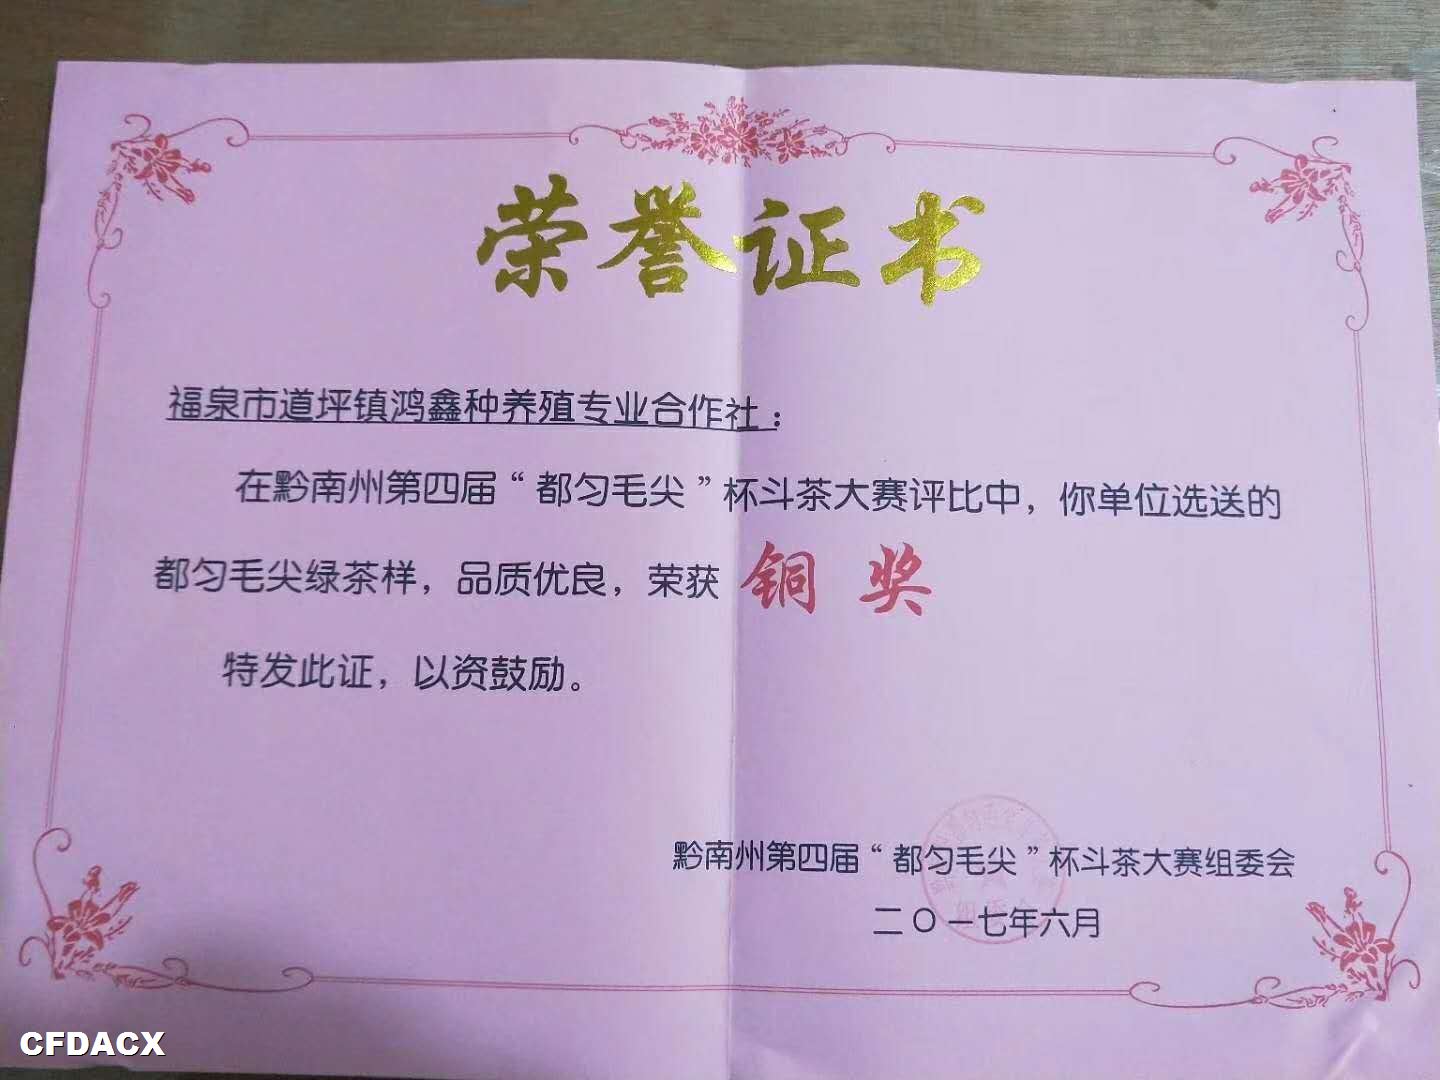 荣誉证书
福泉市道坪镇鸿鑫种养殖专业合作社：
在黔南州第四届“都匀毛尖”杯斗茶大赛评比中，你单位选送的
都匀毛尖绿茶样，品质优良，荣获 铜奖
特发此证，以资鼓励。
黔南州第四届“都匀毛尖”杯斗茶大赛组委会
二〇一七年六月
CFDACX